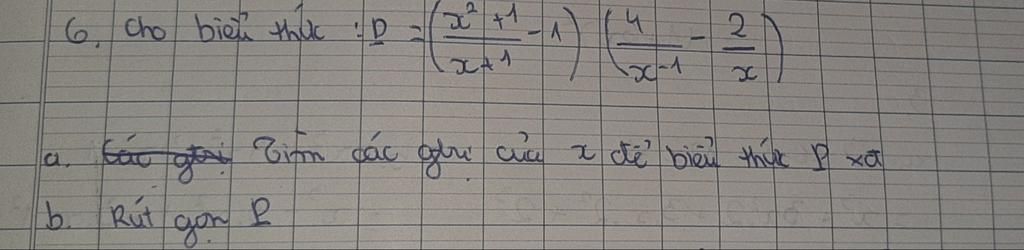 6. Cho biểu thức : P = ( (x² + 1)/(x + 1) - 1 ) ( 4/(x - 1) - 2/x )
a. Các gtri Tìm các gtri của x để biểu thức P xđ
b. Rút gọn P